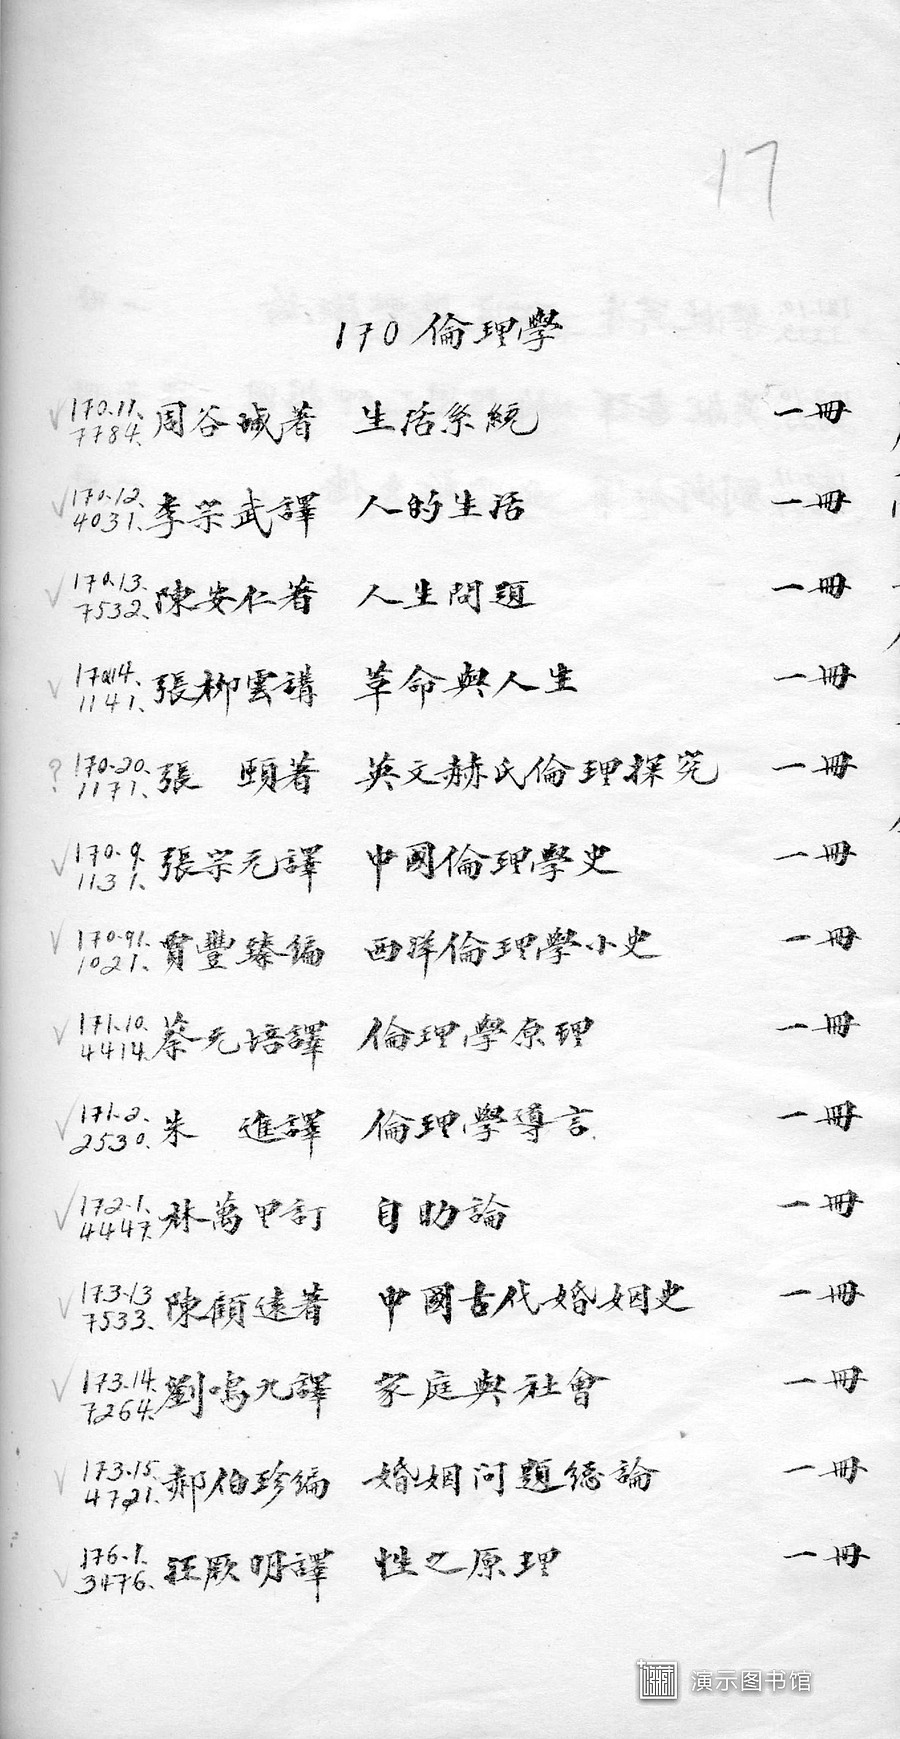 17
170 倫理學
170.11. 周谷城著 生活系統 一冊
7784.
170.12. 李宗武譯 人的生活 一冊
4031.
170.13. 陳安仁著 人生問題 一冊
7532.
170.14. 張柳雲講 革命與人生 一冊
1141.
? 170.20. 張 頤著 英文赫氏倫理探究 一冊
1171.
170.9. 張宗元譯 中國倫理學史 一冊
1131.
170.91. 賈豐臻編 西洋倫理學小史 一冊
1021.
171.10. 蔡元培譯 倫理學原理 一冊
4414.
171.2. 朱 進譯 倫理學導言 一冊
2530.
172.1. 林萬甲訂 自助論 一冊
4447.
173.13 陳顧遠著 中國古代婚姻史 一冊
7533.
173.14. 劉鳴九譯 家庭與社會 一冊
7264.
173.15. 郝伯珍編 婚姻问題總論 一冊
4721.
176.1. 汪厥明譯 性之原理 一冊
3476.
演示图书馆